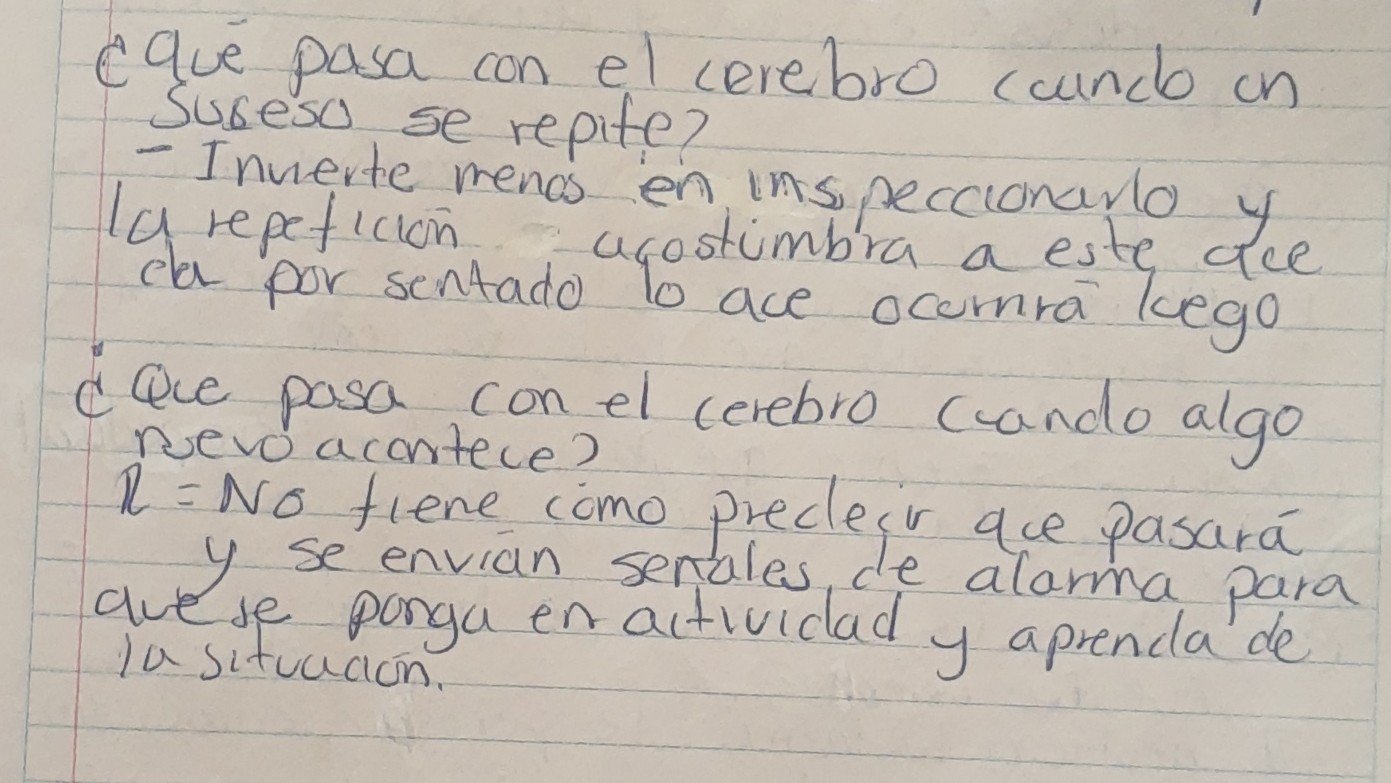 ¿Qué pasa con el cerebro cuando un
suceso se repite?
- Invierte menos en inspeccionarlo y
la repetición acostumbra a este que
da por sentado lo que ocurrirá luego
¿Que pasa con el cerebro cuando algo
nuevo acontece?
R = No tiene cómo predecir que pasará
y se envían señales de alarma para
que se ponga en actividad y aprenda de
la situación.